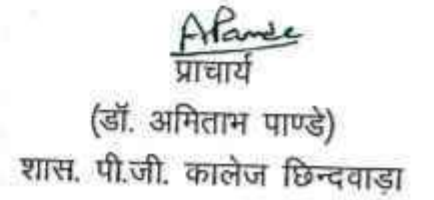 APande
प्राचार्य
(डॉ. अमिताभ पाण्डे)
शास. पी.जी. कालेज छिन्दवाड़ा